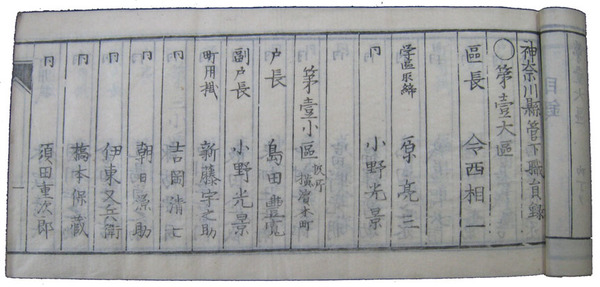 神奈川縣管下職員録
〇第壹大區
區長 今西相一
学區取締 原亮三
同 小野光景
第壹小區 横濱本町
戸長 島田豊寛
副戸長 小野光景
町用掛 新藤宇之助
同 吉岡清七
同 朝田源助
同 伊東又兵衛
同 橋本保蔵
同 須田重次郎